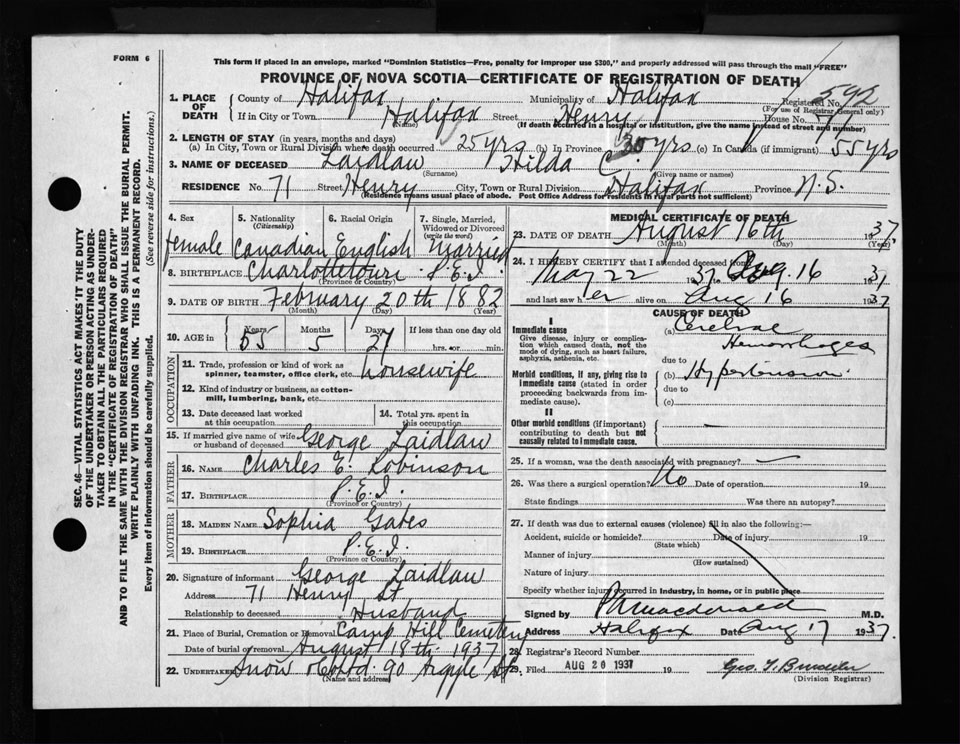 FORM 6
This form if placed in an envelope, marked "Dominion Statistics—Free, penalty for improper use $300," and properly addressed will pass through the mail "FREE"
PROVINCE OF NOVA SCOTIA—CERTIFICATE OF REGISTRATION OF DEATH
SEC. 46—VITAL STATISTICS ACT MAKES IT THE DUTY
OF THE UNDERTAKER OR PERSON ACTING AS UNDER-
TAKER TO OBTAIN ALL THE PARTICULARS REQUIRED
IN THE "CERTIFICATE OF REGISTRATION OF DEATH"
AND TO FILE THE SAME WITH THE DIVISION REGISTRAR WHO SHALL ISSUE THE BURIAL PERMIT.
WRITE PLAINLY WITH UNFADING INK. THIS IS A PERMANENT RECORD.
Every item of information should be carefully supplied. (See reverse side for instructions.)
1. PLACE OF DEATH County of Halifax Municipality of Halifax Registered No. 592
(For use of Registrar General only)
If in City or Town Halifax Street Henry House No. 71
(Name) (If death occurred in a hospital or institution, give the name instead of street and number)
2. LENGTH OF STAY (in years, months and days)
(a) In City, Town or Rural Division where death occurred 25 yrs (b) In Province 30 yrs (c) In Canada (if immigrant) 55 yrs
3. NAME OF DECEASED Laidlaw Hilda C.
(Surname) (Given name or names)
RESIDENCE No. 71 Street Henry City, Town or Rural Division Halifax Province N.S.
(Residence means usual place of abode. Post Office Address for residents in rural parts not sufficient)
4. Sex 5. Nationality (Citizenship) 6. Racial Origin 7. Single, Married, Widowed or Divorced (write the word)
female Canadian English Married
8. BIRTHPLACE Charlottetown P.E.I.
(Province or Country)
9. DATE OF BIRTH February 20th 1882
(Month) (Day) (Year)
10. AGE in Years Months Days If less than one day old
55 5 27 hrs. or min.
OCCUPATION
11. Trade, profession or kind of work as spinner, teamster, office clerk, etc. Housewife
12. Kind of industry or business, as cotton-mill, lumbering, bank, etc.
13. Date deceased last worked at this occupation 14. Total yrs. spent in this occupation
15. If married give name of wife or husband of deceased George Laidlaw
FATHER
16. NAME Charles E. Robinson
17. BIRTHPLACE P.E.I.
(Province or Country)
MOTHER
18. MAIDEN NAME Sophia Gates
19. BIRTHPLACE P.E.I.
(Province or Country)
20. Signature of informant George Laidlaw
Address 71 Henry St
Relationship to deceased Husband
21. Place of Burial, Cremation or Removal Camp Hill Cemetery
Date of burial or removal August 18th 1937
22. UNDERTAKER Snow & Co Ltd. 90 Argyle St.
(Name and address)
MEDICAL CERTIFICATE OF DEATH
23. DATE OF DEATH August 16th 1937
(Month) (Day) (Year)
24. I HEREBY CERTIFY that I attended deceased from
May 22 1937 to Aug. 16 1937
and last saw her alive on Aug 16 1937
CAUSE OF DEATH
I
Immediate cause
Give disease, injury or complication which caused death, not the mode of dying, such as heart failure, asphyxia, asthenia, etc.
(a) Cerebral
Hemorrhages
due to
Morbid conditions, if any, giving rise to immediate cause (stated in order proceeding backwards from immediate cause).
(b) Hypertension
due to
(c)
II
Other morbid conditions (if important) contributing to death but not causally related to immediate cause.
25. If a woman, was the death associated with pregnancy? —
26. Was there a surgical operation? No Date of operation 19
State findings Was there an autopsy?
27. If death was due to external causes (violence) fill in also the following:—
Accident, suicide or homicide? Date of injury 19
(State which)
Manner of injury
(How sustained)
Nature of injury
Specify whether injury occurred in industry, in home, or in public place
Signed by MacDonald M.D.
Address Halifax Date Aug 17 1937.
28. Registrar's Record Number
29. Filed AUG 20 1937 19 Geo.
(Division Registrar)